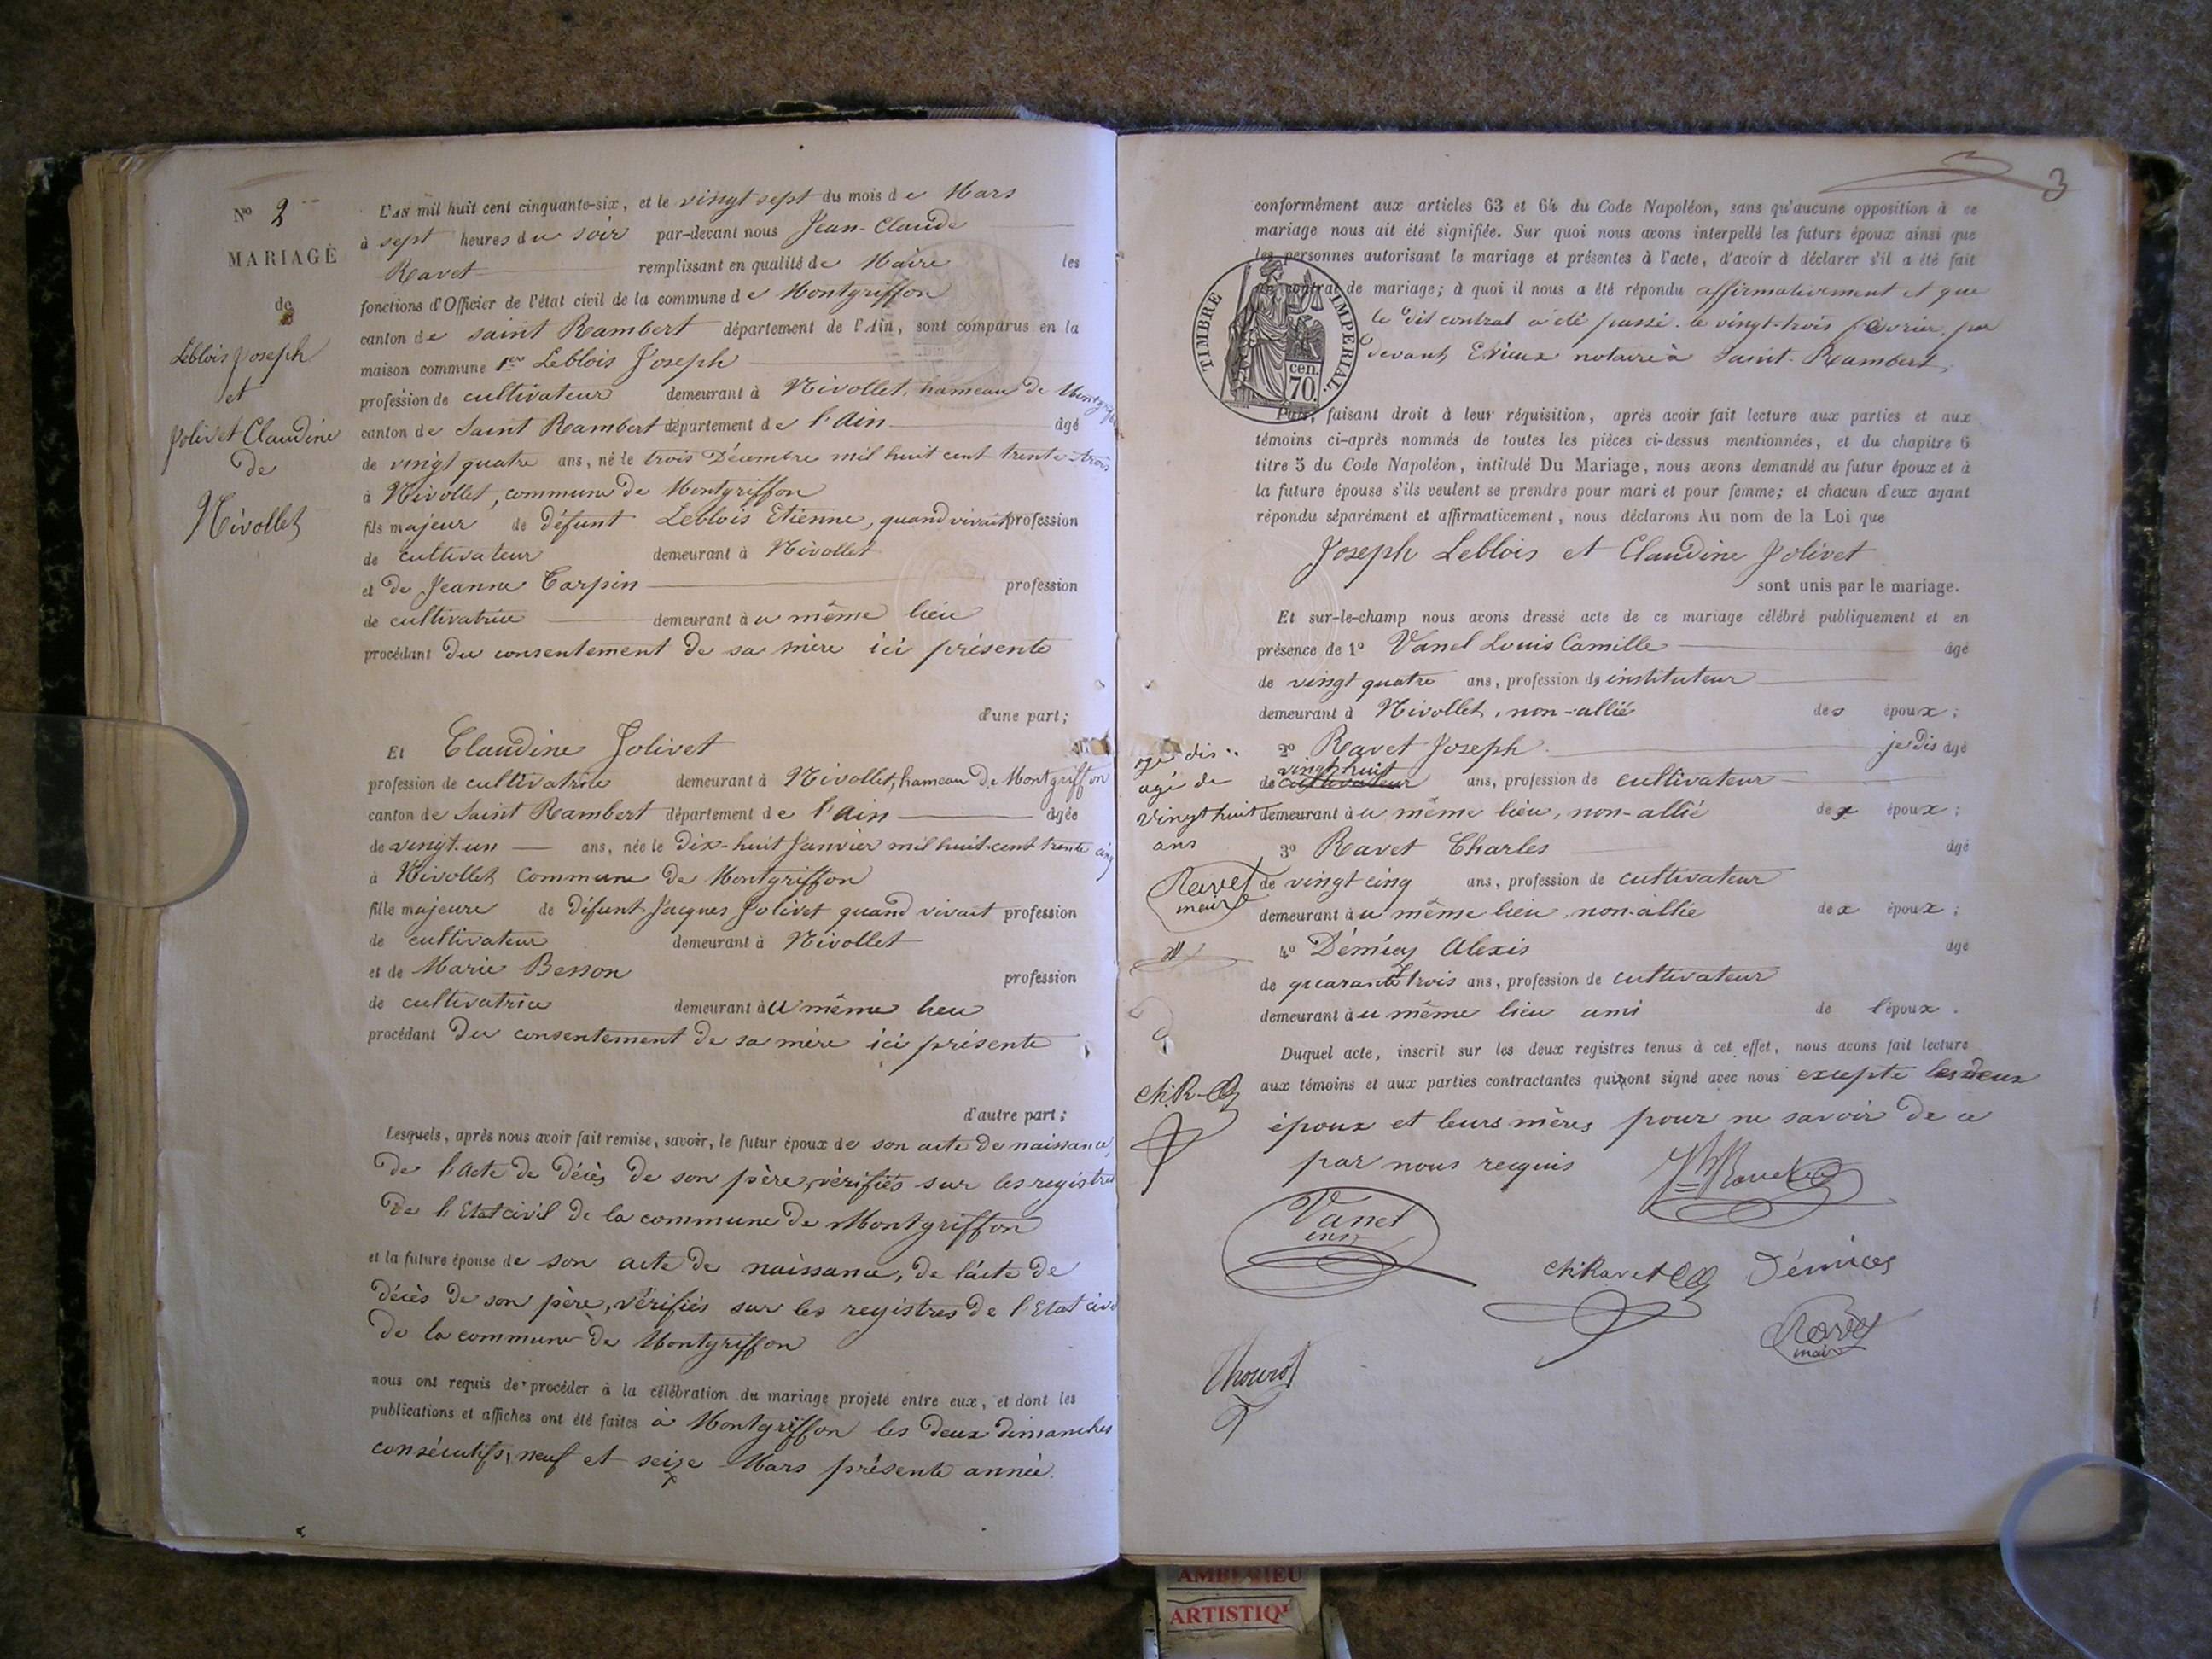 N° 2
MARIAGE
de
Leblois Joseph
et
Jolivet Claudine
de
Nivollet
L'AN mil huit cent cinquante-six, et le vingt sept du mois de Mars
à sept heures du soir par-devant nous Jean-Claude
Ravet remplissant en qualité de Maire les
fonctions d'Officier de l'état civil de la commune de Montgriffon
canton de saint Rambert département de l'Ain, sont comparus en la
maison commune 1er Leblois Joseph
profession de cultivateur demeurant à Nivollet, hameau de Montgriffon
canton de Saint Rambert département de l'Ain âgé
de vingt quatre ans, né le trois Décembre mil huit cent trente-trois
à Nivollet, commune de Montgriffon
fils majeur de défunt Leblois Etienne, quand vivait profession
de cultivateur demeurant à Nivollet
et de Jeanne Carpin profession
de cultivatrice demeurant au même lieu
procédant du consentement de sa mère ici présente
d'une part;
Et Claudine Jolivet
profession de cultivatrice demeurant à Nivollet, hameau de Montgriffon
canton de Saint Rambert département de l'Ain âgée
de vingt-un ans, née le dix-huit Janvier mil huit-cent trente cinq
à Nivollet Commune de Montgriffon
fille majeure de défunt Jacques Jolivet quand vivait profession
de cultivateur demeurant à Nivollet
et de Marie Besson profession
de cultivatrice demeurant au même lieu
procédant du consentement de sa mère ici présente
d'autre part;
Lesquels, après nous avoir fait remise, savoir, le futur époux de son acte de naissance,
de l'acte de décès de son père, vérifiés sur les registres
de l'Etat civil de la commune de Montgriffon
et la future épouse de son acte de naissance, de l'acte de
décès de son père, vérifiés sur les registres de l'Etat civil
de la commune de Montgriffon
nous ont requis de procéder à la célébration du mariage projeté entre eux, et dont les
publications et affiches ont été faites à Montgriffon les deux dimanches
consécutifs, neuf et seize Mars présente année.
3
conformément aux articles 63 et 64 du Code Napoléon, sans qu'aucune opposition à ce
mariage nous ait été signifiée. Sur quoi nous avons interpellé les futurs époux ainsi que
les personnes autorisant le mariage et présentes à l'acte, d'avoir à déclarer s'il a été fait
un contrat de mariage; à quoi il nous a été répondu affirmativement et que
le dit contrat a été passé le vingt-trois février, par
devant notaire à Saint-Rambert,
TIMBRE IMPERIAL.
70 cen.
Puis, faisant droit à leur réquisition, après avoir fait lecture aux parties et aux
témoins ci-après nommés de toutes les pièces ci-dessus mentionnées, et du chapitre 6
titre 5 du Code Napoléon, intitulé Du Mariage, nous avons demandé au futur époux et à
la future épouse s'ils veulent se prendre pour mari et pour femme; et chacun d'eux ayant
répondu séparément et affirmativement, nous déclarons Au nom de la Loi que
Joseph Leblois et Claudine Jolivet
sont unis par le mariage.
Et sur-le-champ nous avons dressé acte de ce mariage célébré publiquement et en
présence de 1° Vanel Louis Camille âgé
de vingt quatre ans, profession de instituteur
demeurant à Nivollet, non-allié des époux;
2° Ravet Joseph je dis âgé
de cultivateur vingt huit ans, profession de cultivateur
demeurant au même lieu, non-allié des époux;
3° Ravet Charles âgé
de vingt cinq ans, profession de cultivateur
demeurant au même lieu, non-allié des époux;
4° Démias Alexis âgé
de quarante trois ans, profession de cultivateur
demeurant au même lieu ami de l'époux.
je dis
agé de
vingt huit
ans
Ravet
maire
Ch.R
Duquel acte, inscrit sur les deux registres tenus à cet effet, nous avons fait lecture
aux témoins et aux parties contractantes qui ont signé avec nous excepté les deux
époux et leurs mères pour ne savoir de ce
par nous requis
Jh Ravet
Vanel
ins
Ch Ravet Démias
Ravet
maire
AMBERIEU
ARTISTIQU